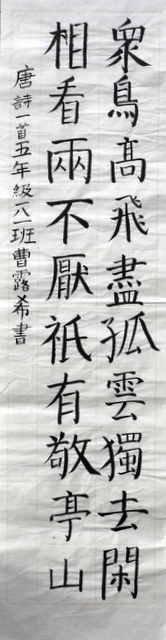 眾鳥高飛盡孤雲獨去閑
相看兩不厭祇有敬亭山
唐詩一首五年級八一班曹露希書